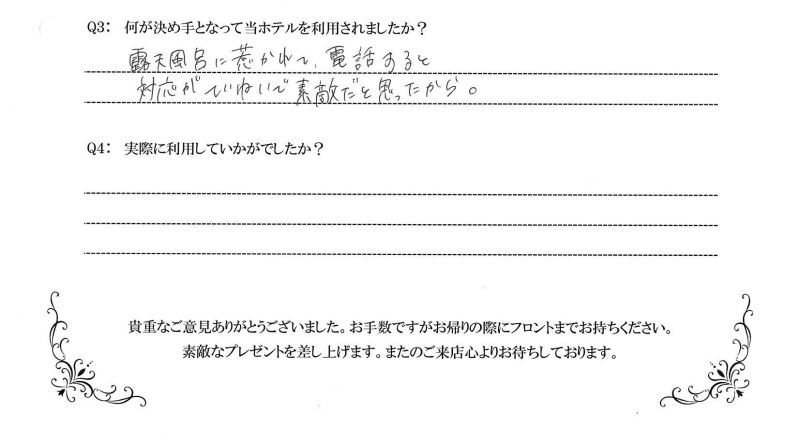 Q3: 何が決め手となって当ホテルを利用されましたか？
露天風呂に惹かれて、電話すると
対応がていねいで素敵だと思ったから。
Q4: 実際に利用していかがでしたか？
貴重なご意見ありがとうございました。お手数ですがお帰りの際にフロントまでお持ちください。
素敵なプレゼントを差し上げます。またのご来店心よりお待ちしております。